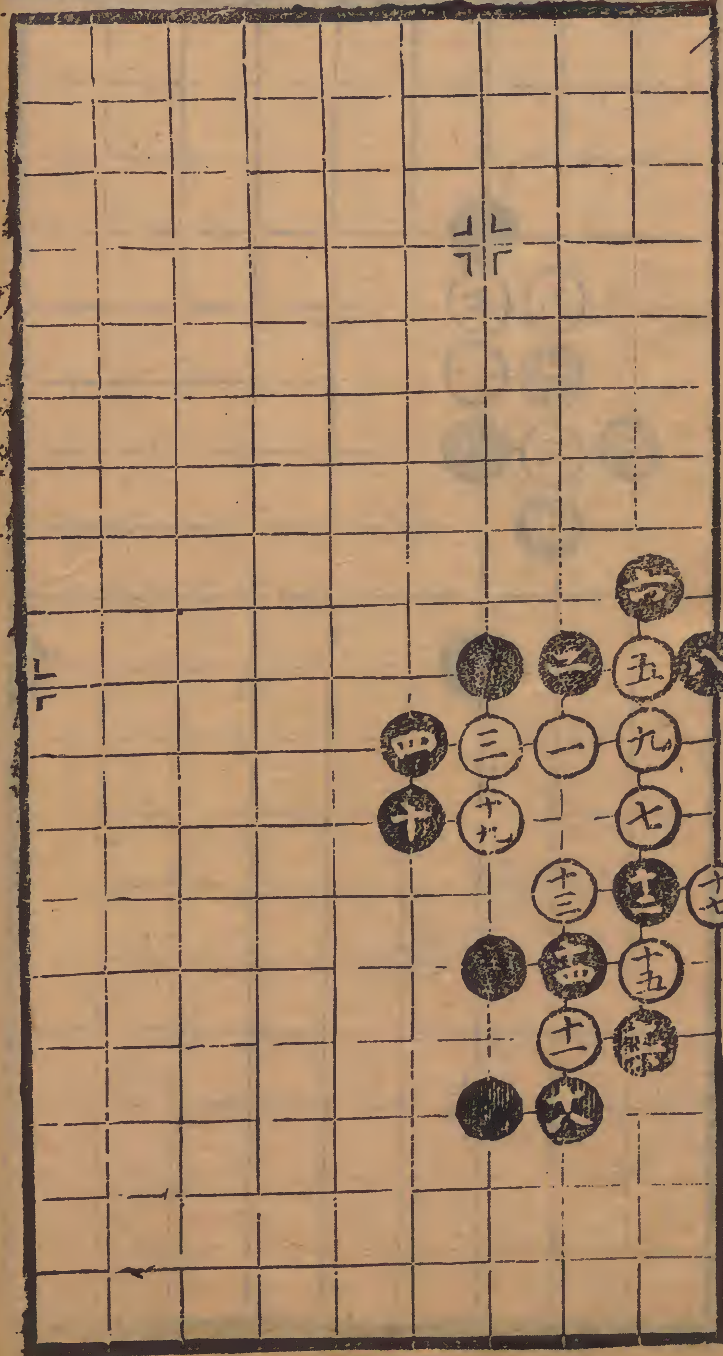 六
二 五 八
四 三 一 九
十 十九 七
十三 十二 十七
十四 十五
十一
十八